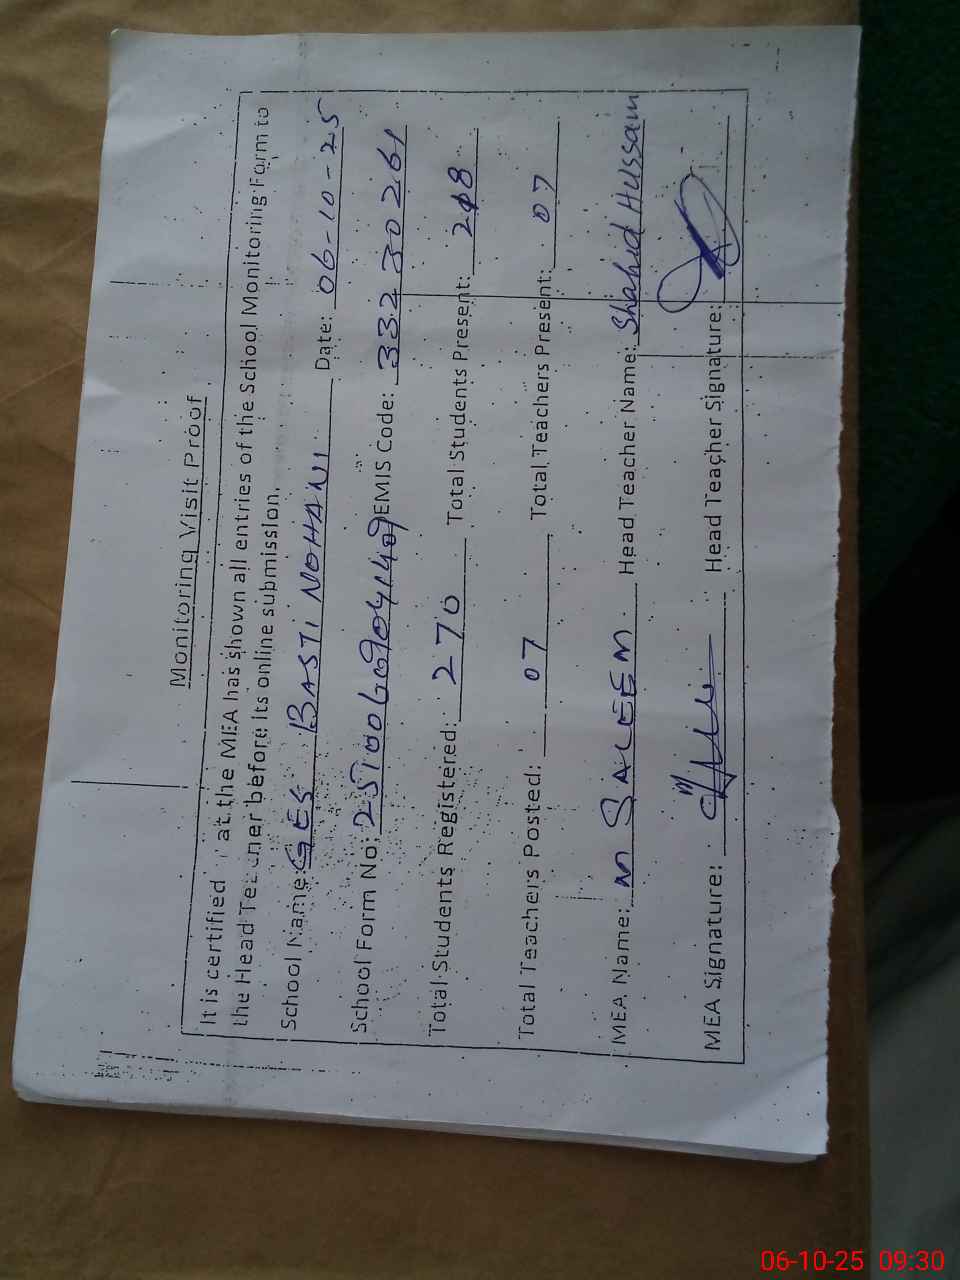 Monitoring Visit Proof
It is certified at the MEA has shown all entries of the School Monitoring Form to
the Head Teacher before its online submission.
School Name: GES BASTI NOHANI Date: 06-10-25
School Form No: EMIS Code: 33230261
Total Students Registered: 270 Total Students Present: 208
Total Teachers Posted: 07 Total Teachers Present: 07
MEA Name: M SALEEM Head Teacher Name: Shahid Hussain
MEA Signature: Head Teacher Signature:
06-10-25 09:30